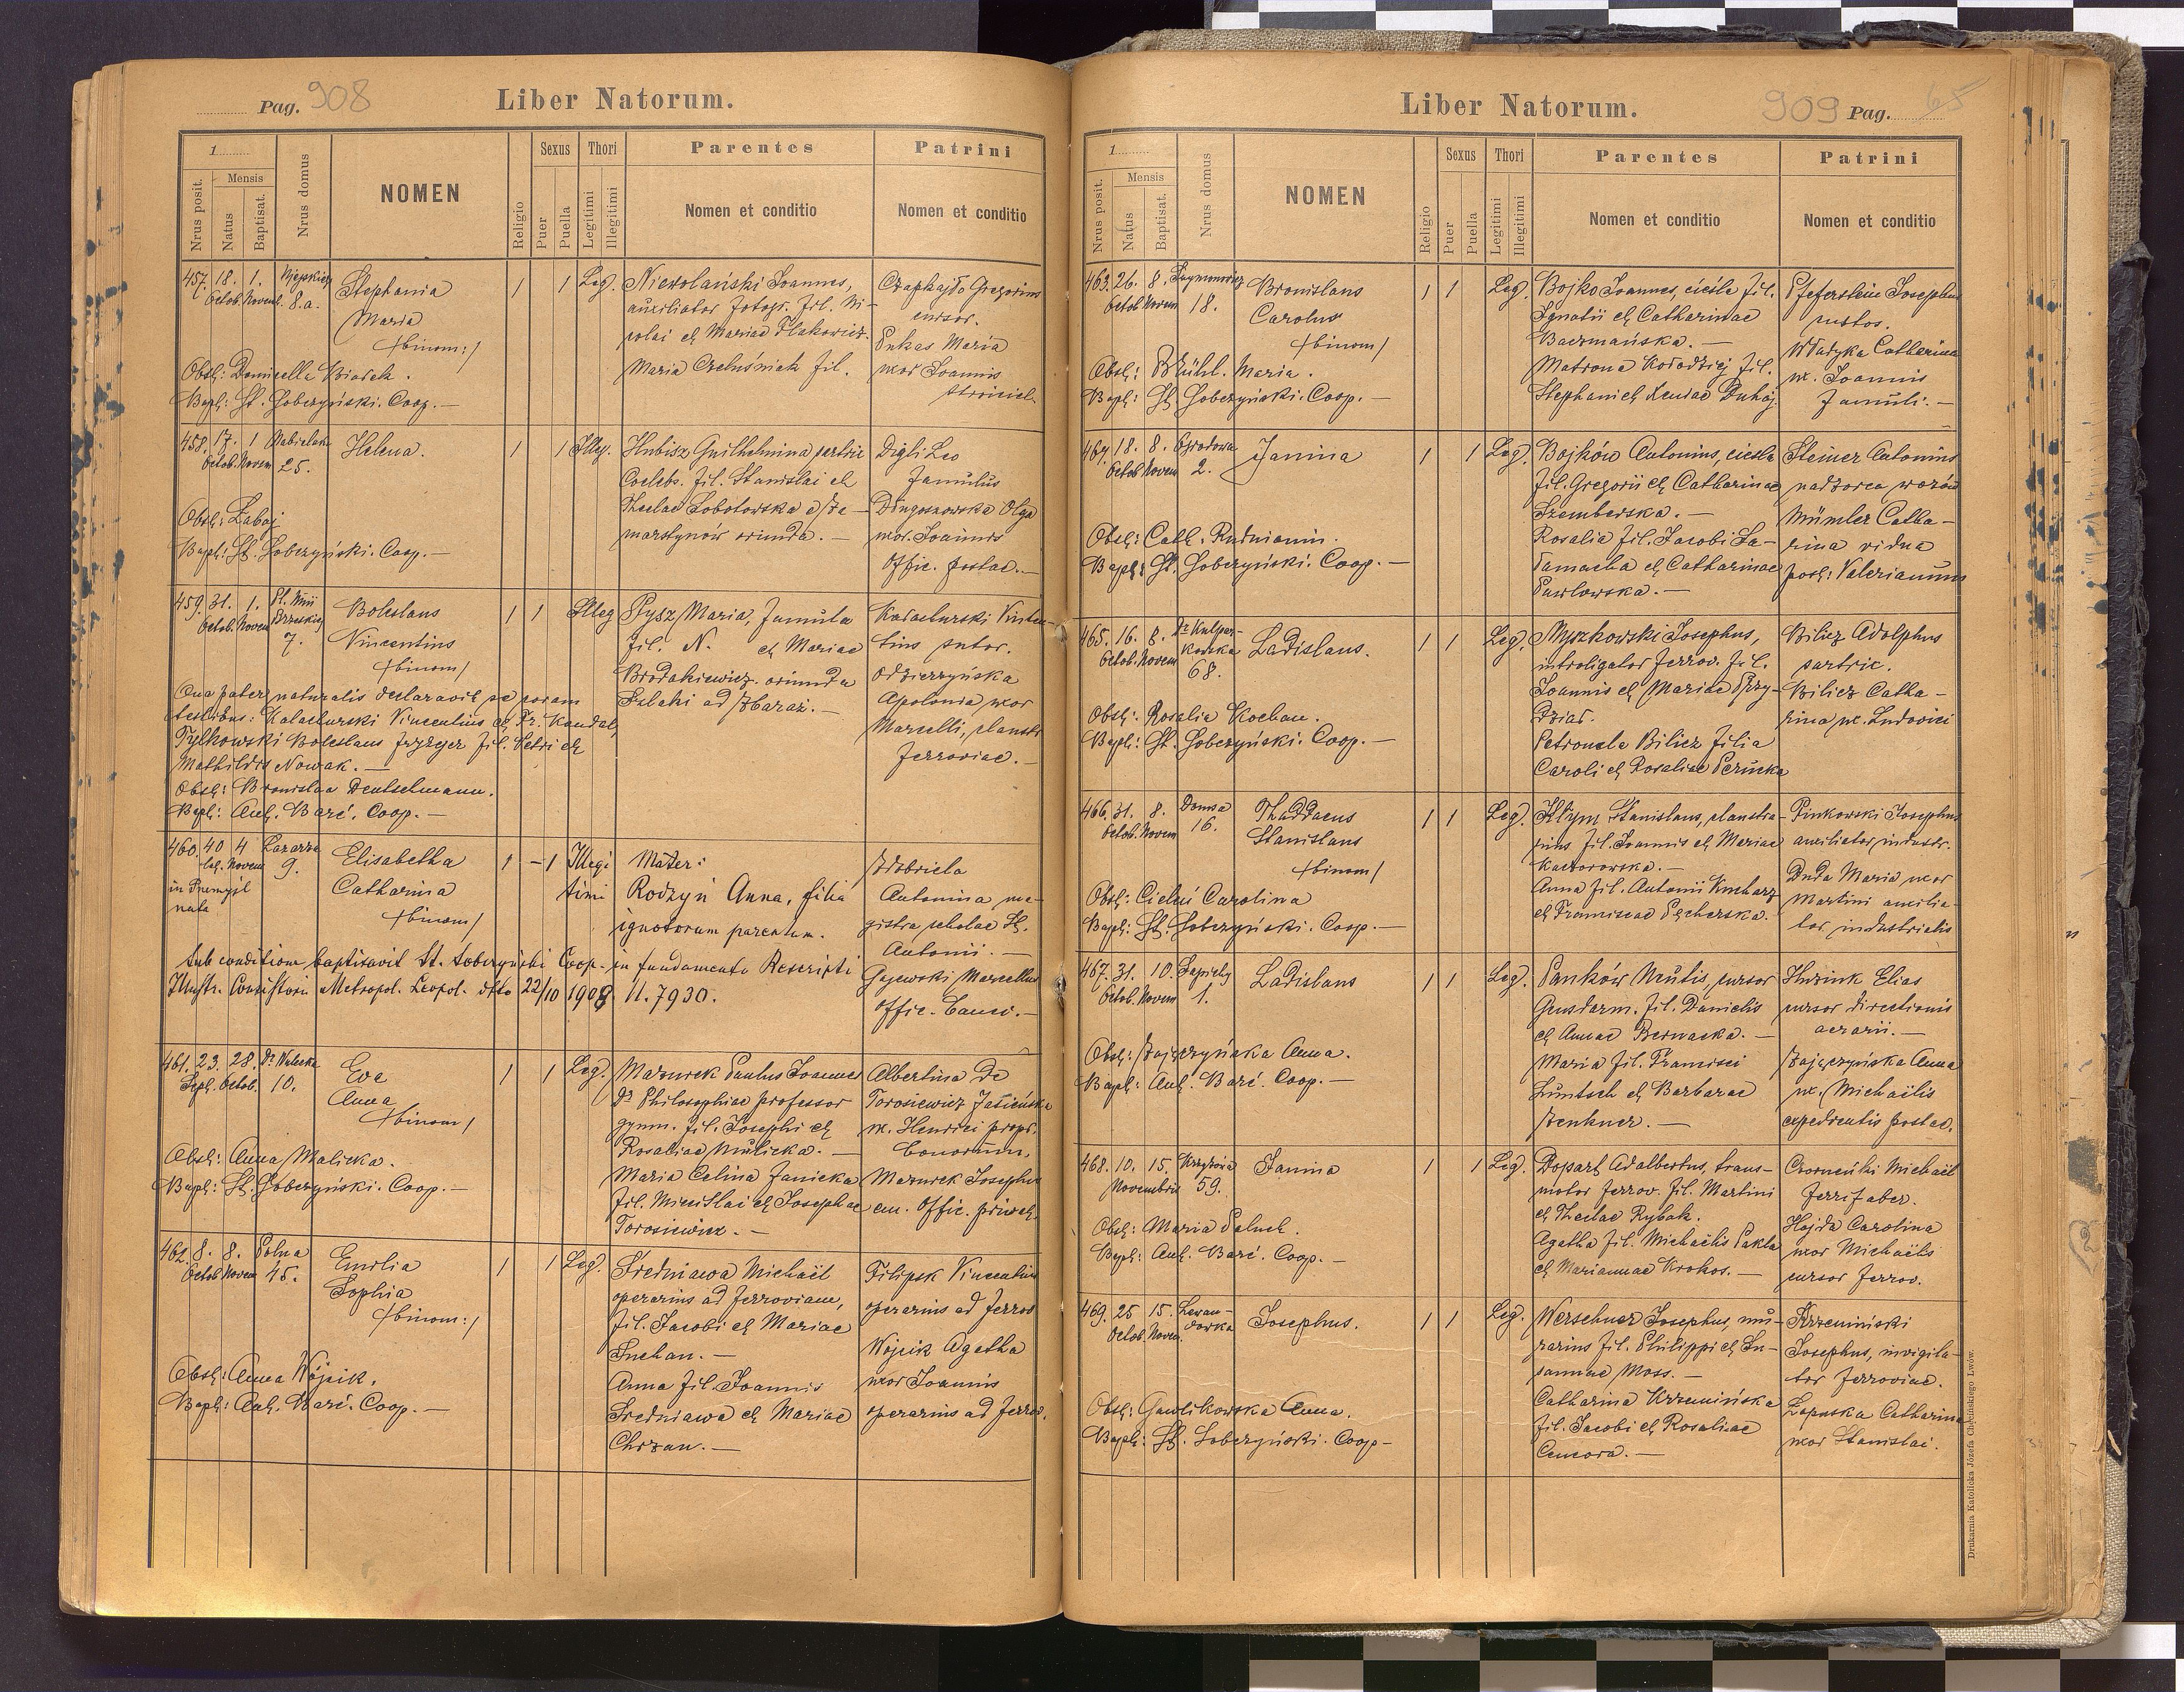 Pag. 908
Liber Natorum.
1
Mensis
Nrus posit.
Natus
Baptisat.
Nrus domus
NOMEN
Religio
Sexus
Puer
Puella
Thori
Legitimi
Illegitimi
Parentes
Nomen et conditio
Patrini
Nomen et conditio
457. 18. Octob. 1. Novem. 8.a.
Stephania
Maria
/:binom:/
1 1 Leg.
Niewolański Joannes,
auxiliator fotogr. fil. Ni-
colai et Mariae
Maria Czeluśniak fil.
Czaphajło Gregorius
cursor.
Maria
uxor Joannis
Obst: Domicella
Bapt: St. Sobczyński. Coop. —
458. 17. Octob. 1 Novem 25.
Helena.
1 1 Illeg.
Hubisz Guilhelmina sartrix
Coelebs. fil. Stanislai et
Theclae Sobotowska
oriunda. —
Digli Leo
famulus
Olga
uxor. Joannis
offic. postae. —
Obst: Łabaj
Bapt: St. Sobczyński. Coop. —
459. 31. Octob. 1. Novem 7.
Boleslaus
Vincentius
/binom/
1 1 Illeg
Pysz Maria, famula
fil. N. et Mariae
Brodakiewicz. oriunda
ad Zbaraż. —
Vincen-
tius sutor.
Odzierzyńska
Apolonia uxor
Marcelli,
ferroviae. —
Qua pater naturalis declaravit se coram
testibus: Vincentius et Fr. Kandel,
Tylkowski Boleslaus fryzyer fil. Petri et
Mathildis Nowak. —
Obst: Bronislaa Deutschmann.
Bapt: Ant. Baré. Coop. —
460. 4 Novem Łazarza 9.
in Przemyśl
nata
Elisabetha
Catharina
/binom/
1 – 1 Illegi
timi
Mater:
Rodzyń Anna, filia
ignotorum parentum.
Antonina ma-
gistra scholae St.
Antonii. —
Gajewski Marcellus
offic. —
Sub conditione baptisavit St. Sobczyński Coop. in fundamento Rescripti
Illustr. Consistorii Metropol. Leopol. dtto 22/10 1908 N. 7930.
461. 23. Sept. 28. Octob. 10.
Eva
Anna
/binom/
1 1 Leg.
Mazurek Paulus Joannes
Dr Philosophiae professor
gymn. fil. Josephi et
Rosaliae Mulicka. —
Maria Celina Janicka
fil. Miecislai et Josephae
Torosiewicz. —
Albertina de
Torosiewicz Jasieńska
ux. Henrici propr.
bonorum.
Mazurek Josephus
em. offic. privat.
Obst: Anna Malicka.
Bapt: St. Sobczyński. Coop. —
462. 8. Octob 8. Novem Polna 45.
Emilia
Sophia
/binom:/
1 1 Leg.
Średniawa Michaël
operarius ad ferroviam,
fil. Jacobi et Mariae
Suchan. —
Anna fil. Joannis
Średniawa et Mariae
Chrzan. —
Filipek Vincentius
operarius ad ferrov
Wójcik Agatha
uxor Joannis
operarius ad ferrov.
Obst: Anna Wójcik.
Bapt: Ant. Baré. Coop. —
Liber Natorum.
909 Pag. 65
1
Mensis
Nrus posit.
Natus
Baptisat.
Nrus domus
NOMEN
Religio
Sexus
Puer
Puella
Thori
Legitimi
Illegitimi
Parentes
Nomen et conditio
Patrini
Nomen et conditio
463. 26. Octob 8. Novem 18.
Bronislaus
Carolus
/binom/
1 1 Leg.
Bojko Joannes, cieśla fil.
Ignatii et Catharinae
Baczmańska. —
Matrona Kołodziej fil.
Stephani et Xeniae Duhaj
Pfeferstein Josephus
custos.
Władyka Catharina
ux. Joannis
famuli. —
Obst: Brühl. Maria.
Bapt: St. Sobczyński. Coop. —
464. 18. Octob 8. Novem 2.
Janina
1 1 Leg.
Bojków Antonius, cieśla
fil. Gregorii et Catharinae
Szemberska. —
Rosalia fil. Jacobi Sa-
łamacha et Catharinae
Pawłowska. —
Steiner Antonius
nadzorca wozów
Mümler Catha-
rina vidua
post: Valerianum
Obst: Cath. Rudnianin.
Bapt: St. Sobczyński. Coop. —
465. 16. Octob. 8. Novem 68.
Ladislaus.
1 1 Leg.
Myszkowski Josephus,
introligator ferrov. fil.
Joannis et Mariae Przy-
dział.
Petronela Bilicz filia
Caroli et Rosaliae Perucka
Bilicz Adolphus
sartric.
Bilicz Catha-
rina ux. Ludovici
Obst: Rosalia Kochan.
Bapt: St. Sobczyński. Coop. —
466. 31. Octob. 8. Novem 16.
Thaddaeus
Stanislaus
/binom/
1 1 Leg.
Kłym Stanislaus, planstra-
rius fil. Joannis et Mariae
Kaczorowska. —
Anna fil. Antonii Kucharz
et Franciscae Pęcherska.
Pinkowski Josephus
auxiliator industr.
Duda Maria uxor
Martini auxilia-
tor industrialis
Obst: Carolina
Bapt: St. Sobczyński. Coop. —
467. 31. Octob 10. Novem Sapiehy 1.
Ladislaus
1 1 Leg.
Pańków cursor
Gendarm. fil. Danielis
et Annae Bernacka. —
Maria fil. Francisci
Luntsch et Barbarae
Zenkner. —
Elias
cursor directionis
aerarii. —
Zajączyńska Anna
ux. Michaëlis
expedientis postae.
Obst: Zajączyńska Anna.
Bapt: Ant. Baré. Coop. —
468. 10. 15. Novembris 59.
Janina
1 1 Leg.
Dopart Adalbertus, trans-
motor ferrov. fil. Martini
et Theclae Rybak.
Agatha fil. Michaëlis Pakla
et Mariannae Krokos. —
Michaël
ferri faber.
Hajda Carolina
uxor Michaëlis
cursor ferrov.
Obst: Maria Paluch.
Bapt: Ant. Baré. Coop. —
469. 25 Octob. 15. Novem. Lewan-
dówka
Josephus.
1 1 Leg.
Werschner Josephus, mu-
rarius fil. Philippi et Su-
sannae Moss. —
Catharina Krzemińska
fil. Jacobi et Rosaliae
Cencora. —
Krzemiński
Josephus, invigila-
tor ferroviae.
Łapuska Catharina
uxor Stanislai.
Obst: Gawlikowska Anna.
Bapt: St. Sobczyński. Coop —
Drukarnia Katolicka Józefa Chęcińskiego Lwów.